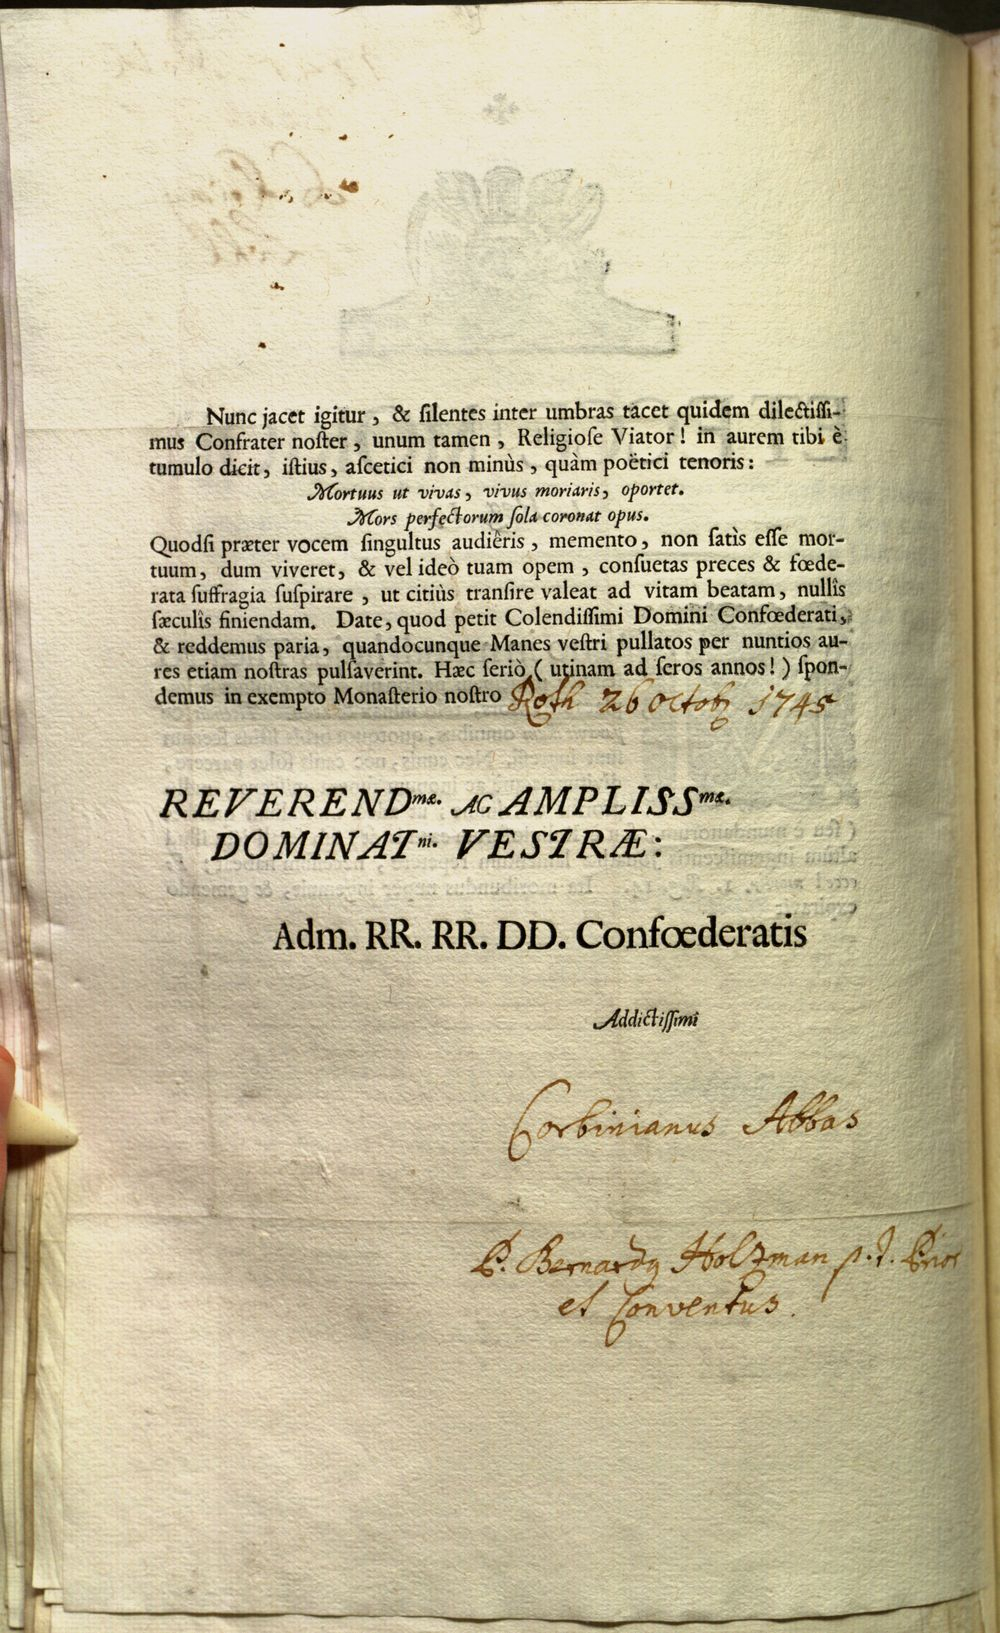 Nunc jacet igitur, & ſilentes inter umbras tacet quidem dilectiſſi-
mus Confrater noſter, unum tamen, Religioſe Viator! in aurem tibi è
tumulo dicit, iſtius, aſcetici non minùs, quàm poëtici tenoris:
Mortuus ut vivas, vivus moriaris, oportet.
Mors perfectorum ſola coronat opus.
Quodſi præter vocem ſingultus audiêris, memento, non ſatìs eſſe mor-
tuum, dum viveret, & vel ideò tuam opem, conſuetas preces & fœde-
rata ſuffragia ſuſpirare, ut citiùs tranſire valeat ad vitam beatam, nullîs
ſæculîs finiendam. Date, quod petit Colendiſſimi Domini Confœderati,
& reddemus paria, quandocunque Manes veſtri pullatos per nuntios au-
res etiam noſtras pulſaverint. Hæc ſeriò ( utinam ad ſeros annos! ) ſpon-
demus in exempto Monaſterio noſtro Roth 26 Octob 1745
REVERENDmæ. AC AMPLISSmæ.
DOMINATni. VESTRÆ:
Adm. RR. RR. DD. Confœderatis
Addictiſſimi
Corbinianus Abbas
P. Bernardq Holzman p.t. Prior
et Conventus.